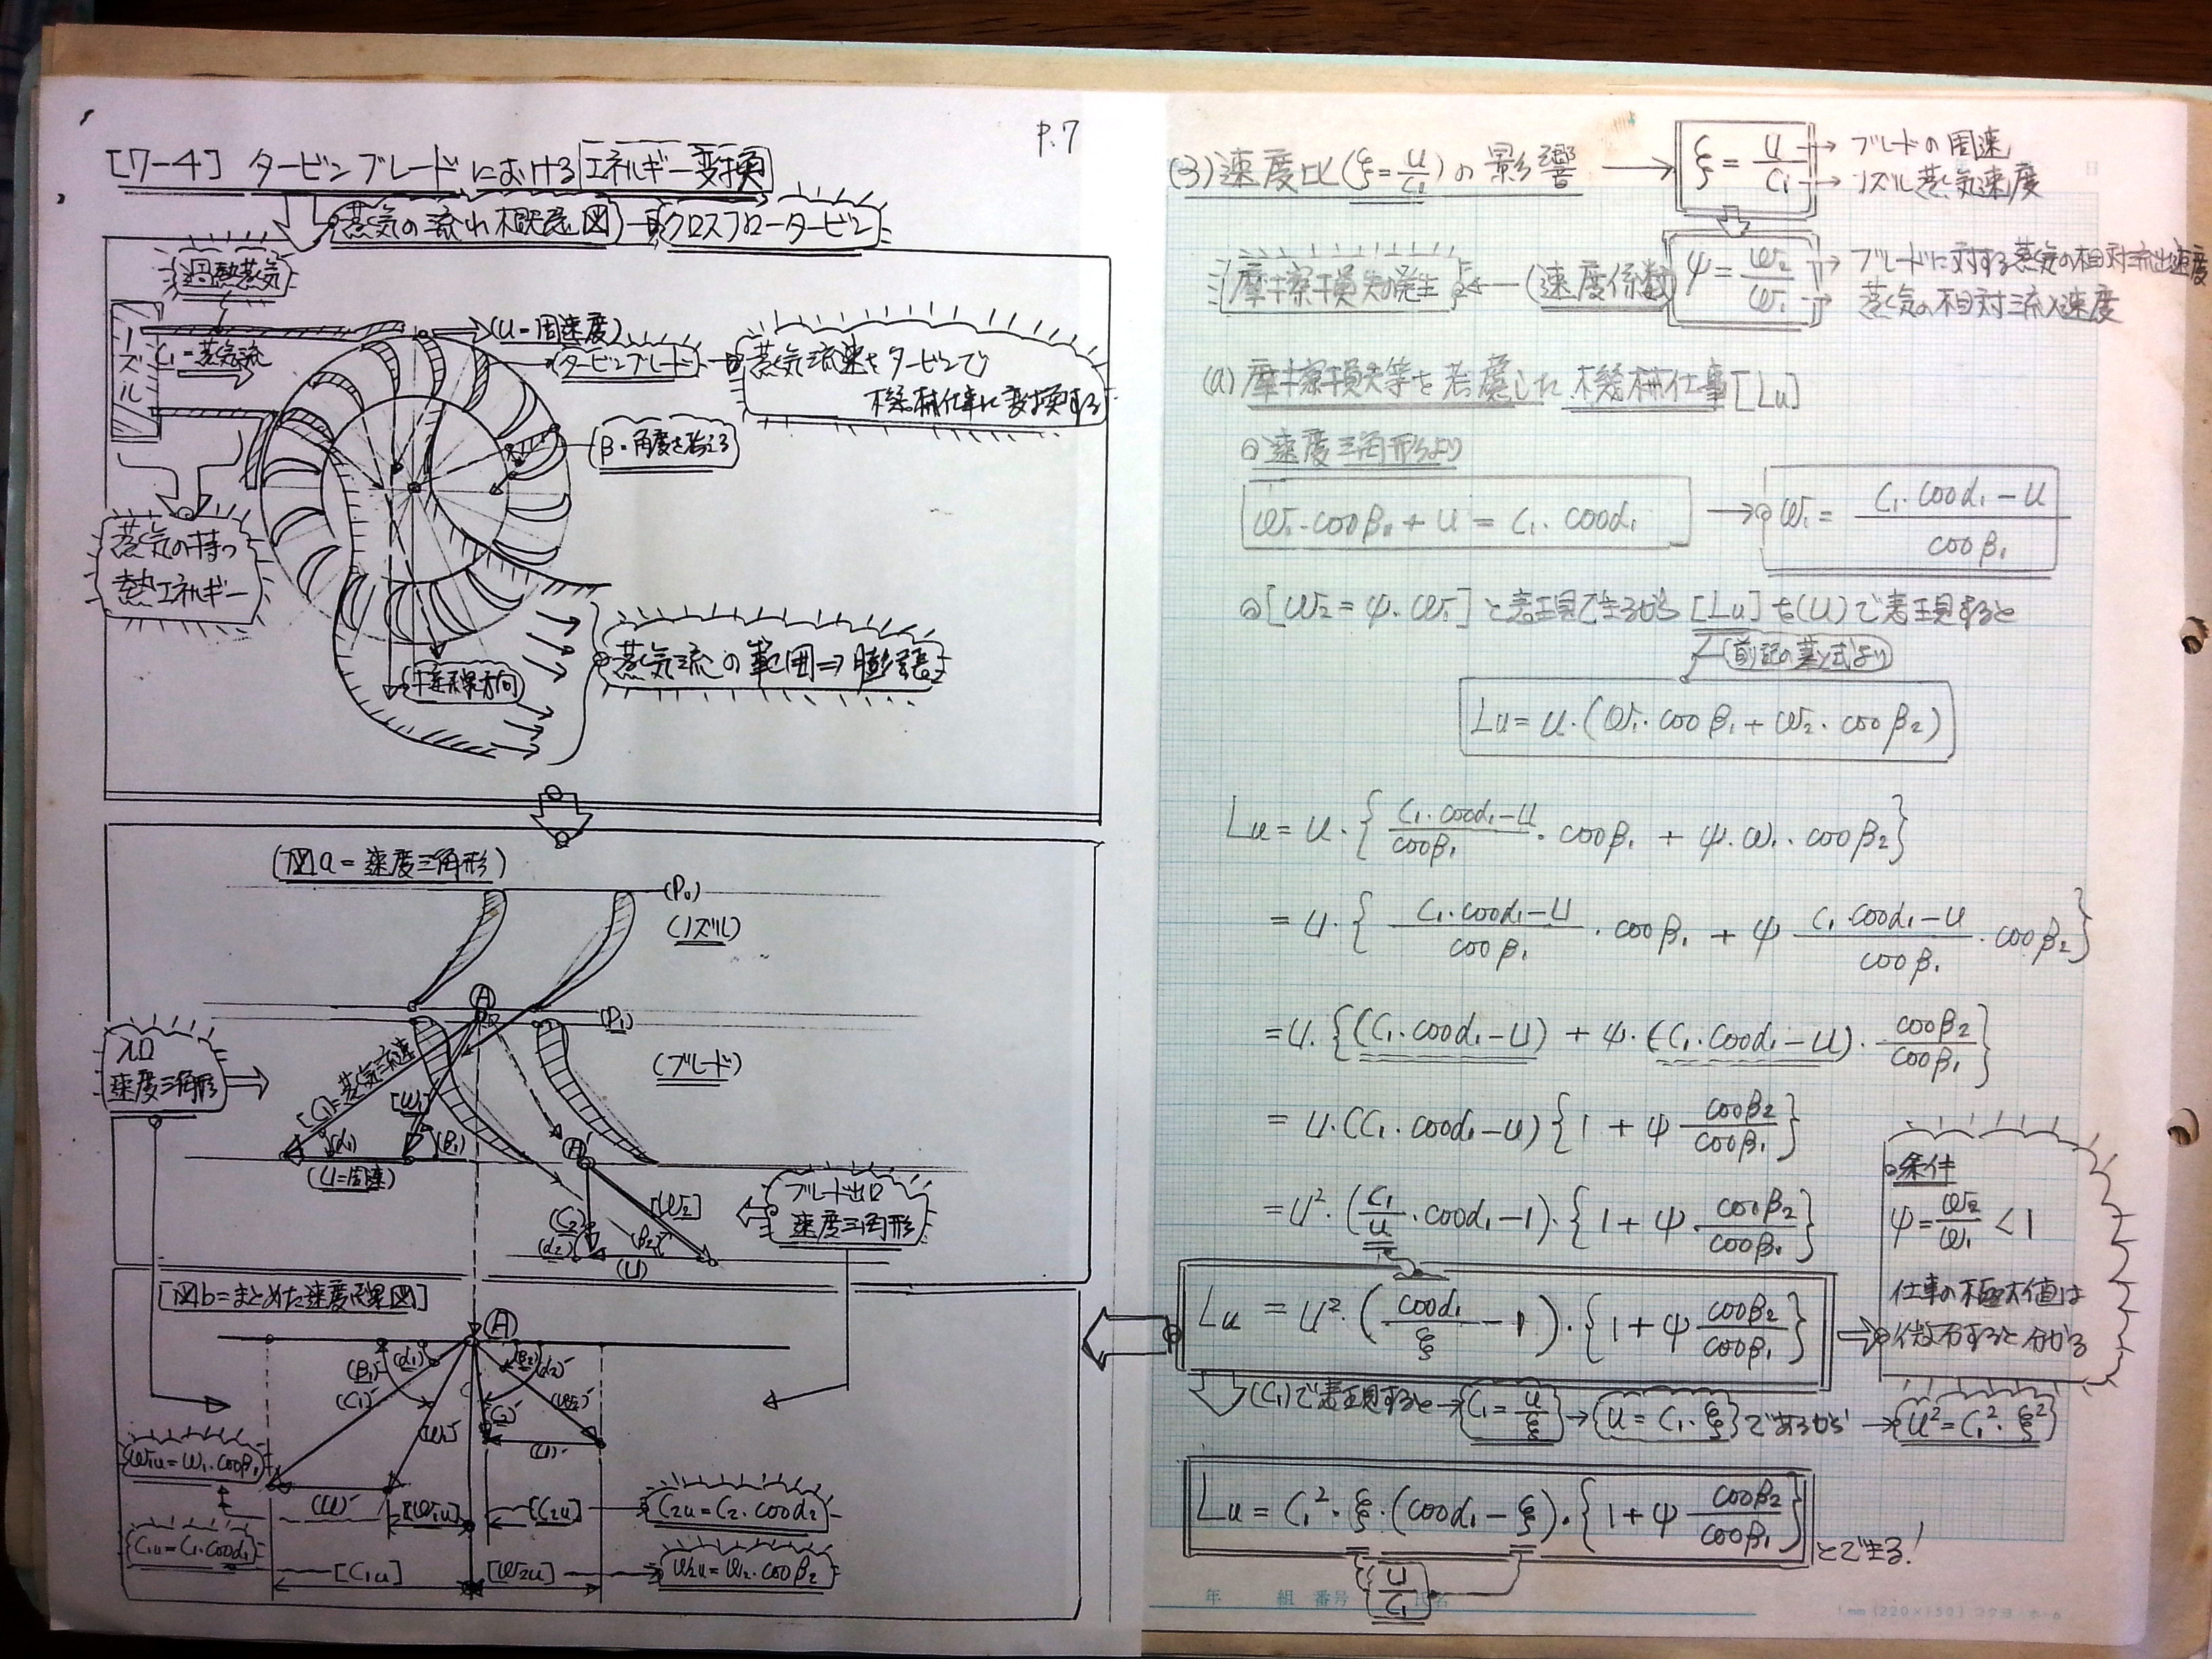 P.7
[7-4] タービンブレードにおけるエネルギー変換
蒸気の流れ概念図 クロスフロータービン
過熱蒸気
ノズル
C₁=蒸気流
(U=周速度)
タービンブレード
蒸気流速をタービンで
機械仕事に変換する
β・角度を考える
蒸気の持つ
熱エネルギー
接線方向
蒸気流の範囲⇒膨張
(図a=速度三角形)
(P₀)
(ノズル)
Ⓐ
(P₁)
(ブレード)
入口
速度三角形
[C₁=蒸気流速]
[W₁]
(α₁)
(β₁)
(U=周速)
Ⓐ'
[W₂]
(C₂)
(α₂)
(β₂)
(U)
ブレード出口
速度三角形
[図b=まとめた速度線図]
Ⓐ
(β₁)
(α₁)
(β₂)
(α₂)
(C₁)
(W₁)
(C₂)
(W₂)
(U)
W₁u=W₁・cosβ₁
(U)
[W₁u]
[C₂u]
C₂u=C₂・cosα₂
C₁u=C₁・cosα₁
[C₁u]
[W₂u]
W₂u=W₂・cosβ₂
(3)速度比(ξ=U/C₁)の影響
ξ=U/C₁
ブレードの周速
ノズル蒸気速度
摩擦損失の発生 ← (速度係数)
ψ=W₂/W₁
ブレードに対する蒸気の相対流出速度
蒸気の相対流入速度
(a) 摩擦損失等を考慮した機械仕事[Lu]
◦速度三角形より
W₁・cosβ₁+U=C₁・cosα₁ → W₁=(C₁・cosα₁-U)/cosβ₁
◦[W₂=ψ・W₁]と表現できるから[Lu]を(U)で表現すると
前記の基本式より
Lu=U・(W₁・cosβ₁+W₂・cosβ₂)
Lu=U・{(C₁・cosα₁-U)/cosβ₁・cosβ₁+ψ・W₁・cosβ₂}
=U・{(C₁・cosα₁-U)/cosβ₁・cosβ₁+ψ(C₁・cosα₁-U)/cosβ₁・cosβ₂}
=U・{(C₁・cosα₁-U)+ψ・(C₁・cosα₁-U)・cosβ₂/cosβ₁}
=U・(C₁・cosα₁-U){1+ψcosβ₂/cosβ₁}
=U²・(C₁/U・cosα₁-1)・{1+ψ・cosβ₂/cosβ₁}
Lu=U²・(cosα₁/ξ-1)・{1+ψcosβ₂/cosβ₁}
◦条件
ψ=W₂/W₁<1
仕事の極大値は
微分すると分かる
(C₁)で表現すると→C₁=U/ξ→U=C₁・ξであるから→U²=C₁²・ξ²
Lu=C₁²・ξ・(cosα₁-ξ)・{1+ψcosβ₂/cosβ₁}とできる!
U/C₁
年 組 番号 氏名